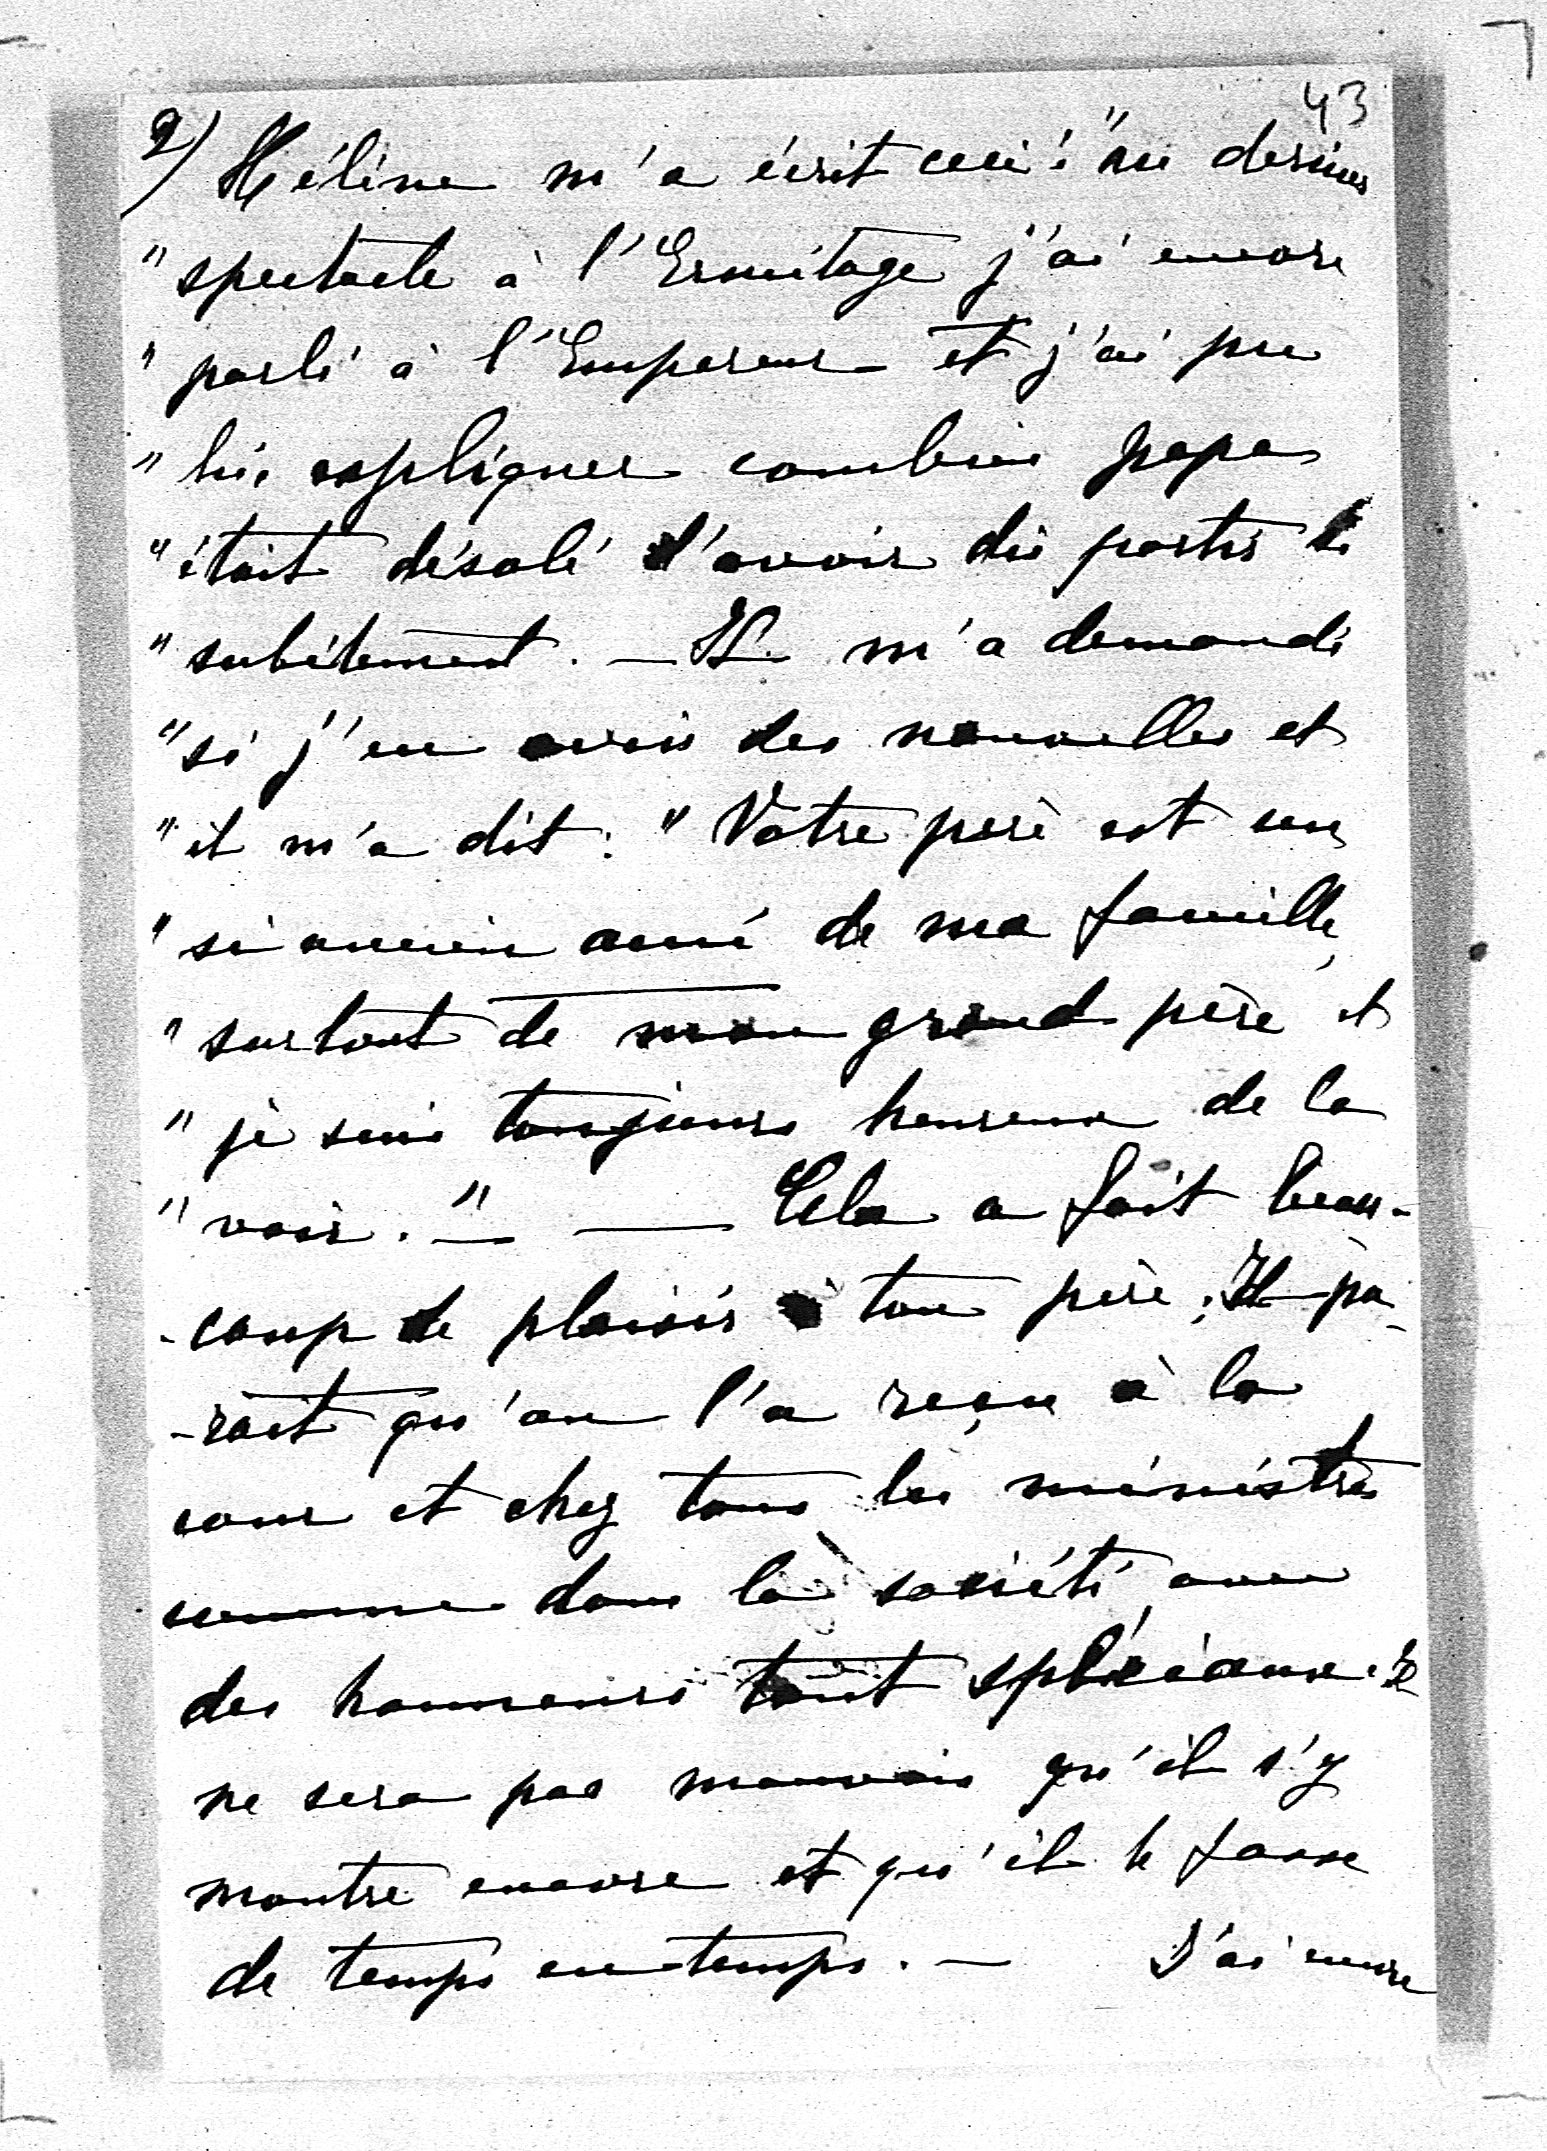 43
2) Hélène m'a écrit ceci: "au dernier
" spectacle à l'Ermitage j'ai encore
" parlé à l'Empereur et j'ai pu
" lui expliquer combien papa
" était désolé d'avoir dû partir si
" subitement. — Il m'a demandé
" si j'en avais des nouvelles et
" il m'a dit: " Votre père est un
" si ancien ami de ma famille,
" surtout de mon grand père et
" je suis toujours heureux de le
" voir." — Cela a fait beau-
-coup de plaisir à ton père. Il pa-
-rait qu'on l'a reçu à la
cour et chez tous les ministres
comme dans la société avec
des honneurs tout spéciaux. Il
ne sera pas mauvais qu'il s'y
montre encore et qu'il le fasse
de temps en temps. — J'ai encore